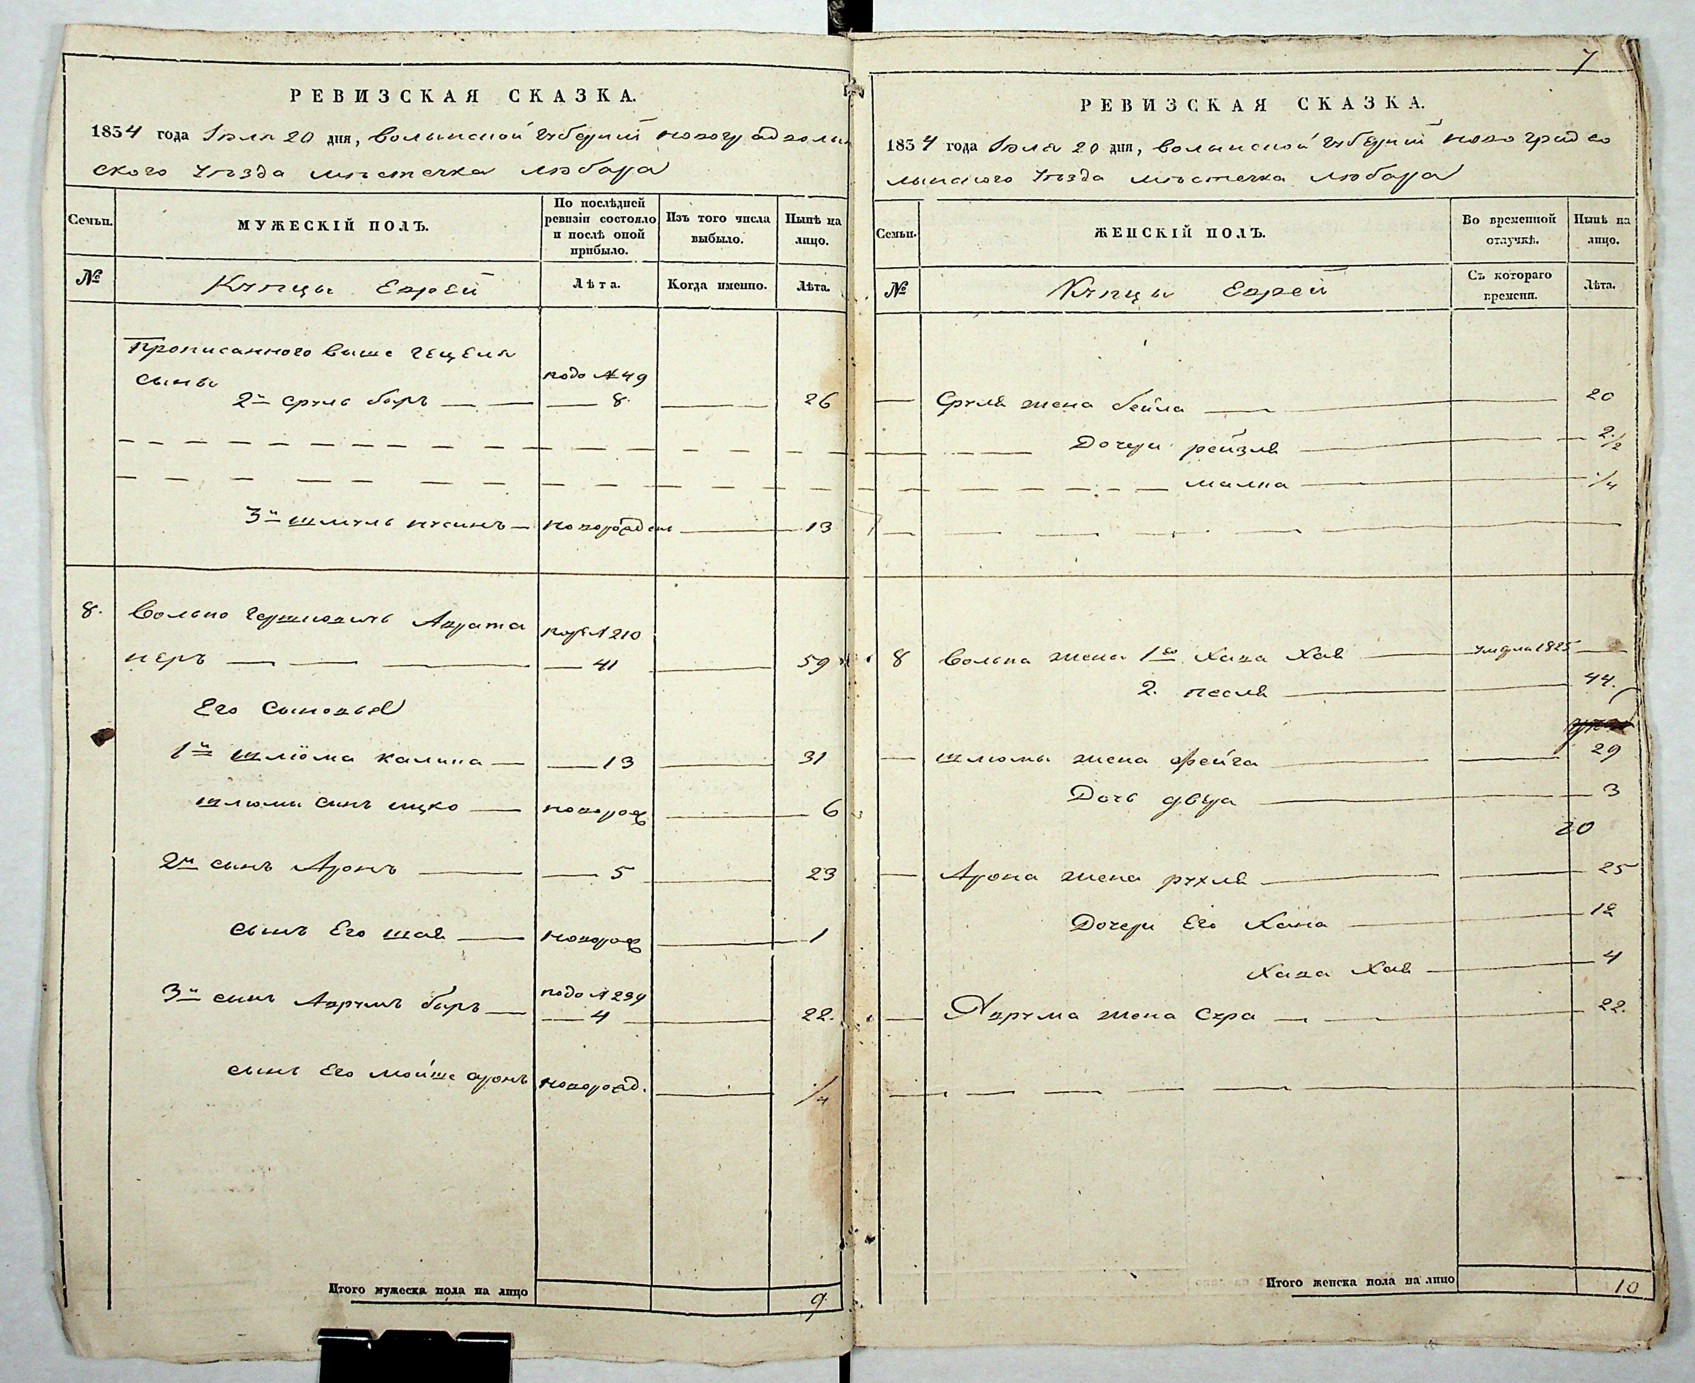 РЕВИЗСКАЯ СКАЗКА.
1854 года Іюля 20 дня, Волынской Губерніи Новоградволын
ского Уѣзда мѣстечка Любара
Семьи. МУЖЕСКІЙ ПОЛЪ. По послѣдней ревизіи состояло и послѣ оной прибыло. Изъ того числа выбыло. Нынѣ на лицо.
№ Купцы Евреи Лѣта. Когда именно. Лѣта.
Прописанного выше Гецеля
сыны подъ № 49
2й Сруль Беръ 8 26
3й Шмуль Нусинъ новорожден 13
8. Волько Гершковичъ Аврата подъ № 210
неръ 41 59
Его Сыновья
1й Шлiома Калина 13 31
Шлюмы сынъ Ицко новорож 6
2й сынъ Аронъ 5 23
сынъ Его Шая новорож 1
3й сынъ Аврумъ Беръ подъ № 239
4 22.
сынъ Его Мойше Аронъ новорожд. 1/4
Итого мужеска пола на лицо 9
7
РЕВИЗСКАЯ СКАЗКА.
1854 года Іюля 20 дня, Волынской Губерніи Новоградво
лынского Уѣзда мѣстечка Любара
Семьи. ЖЕНСКІЙ ПОЛЪ. Во временной отлучкѣ. Нынѣ на лицо.
№ Купцы Евреи Съ котораго времени. Лѣта.
Сруля жена Бейла 20
Дочери Рейзля 2 1/2
Малка 1/4
8 Волька жена 1я Хана Хая умерла 1825
2. Песля 44.
Шлюмы жена Фейга 29
Дочь Двыра 3
20
Арона жена Рухля 25
Дочери Его Хана
Хана Хая 4
Аврума жена Сура 22.
Итого женска пола на лицо 10